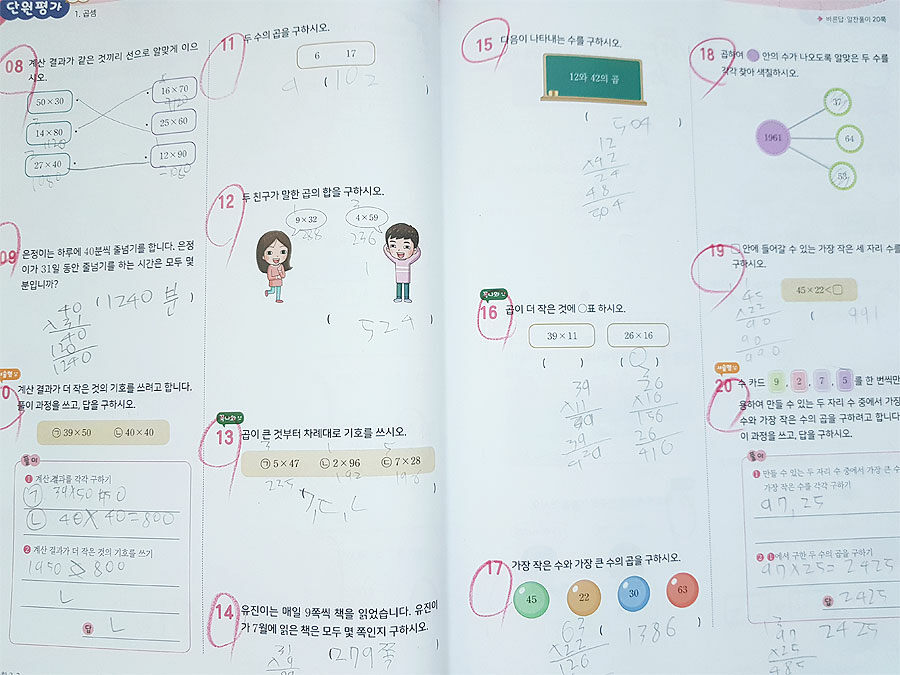 단원평가
1. 곱셈
08 계산 결과가 같은 것끼리 선으로 알맞게 이으
시오.
50×30
16×70
14×80
25×60
27×40
12×90
1080
09 은정이는 하루에 40분씩 줄넘기를 합니다. 은정
이가 31일 동안 줄넘기를 하는 시간은 모두 몇
분입니까?
( 1240 분 )
40
×31
40
120
1240
서술형
0 계산 결과가 더 작은 것의 기호를 쓰려고 합니다.
풀이 과정을 쓰고, 답을 구하시오.
㉠ 39×50 ㉡ 40×40
풀이
❶ 계산 결과를 각각 구하기
㉡ 40×40=800
❷ 계산 결과가 더 작은 것의 기호를 쓰기
1950 > 800
ㄴ
답 ㄴ
11 두 수의 곱을 구하시오.
6 17
( 102 )
12 두 친구가 말한 곱의 합을 구하시오.
9×32
4×59
288
236
( 524 )
13 곱이 큰 것부터 차례대로 기호를 쓰시오.
㉠ 5×47 ㉡ 2×96 ㉢ 7×28
192
14 유진이는 매일 9쪽씩 책을 읽었습니다. 유진이
가 7월에 읽은 책은 모두 몇 쪽인지 구하시오.
31
×9
279쪽
바른답·알찬풀이 20쪽
15 다음이 나타내는 수를 구하시오.
12와 42의 곱
( 504 )
12
24
48
504
16 곱이 더 작은 것에 ○표 하시오.
39×11
26×16
( ) ( ○ )
39
×11
39
26
×16
156
26
17 가장 작은 수와 가장 큰 수의 곱을 구하시오.
45 22 30 63
( 1386 )
63
×22
126
18 곱하여 안의 수가 나오도록 알맞은 두 수를
각각 찾아 색칠하시오.
1961
37
64
53
19 □ 안에 들어갈 수 있는 가장 작은 세 자리 수를
구하시오.
45×22<□
( 991 )
45
×22
90
90
990
서술형
20 수 카드 9, 2, 7, 5를 한 번씩만
용하여 만들 수 있는 두 자리 수 중에서 가장
수와 가장 작은 수의 곱을 구하려고 합니다
이 과정을 쓰고, 답을 구하시오.
풀이
❶ 만들 수 있는 두 자리 수 중에서 가장 큰
가장 작은 수를 각각 구하기
97, 25
❷ ❶에서 구한 두 수의 곱을 구하기
97×25=2425
답 2425
97
×25
485
2425